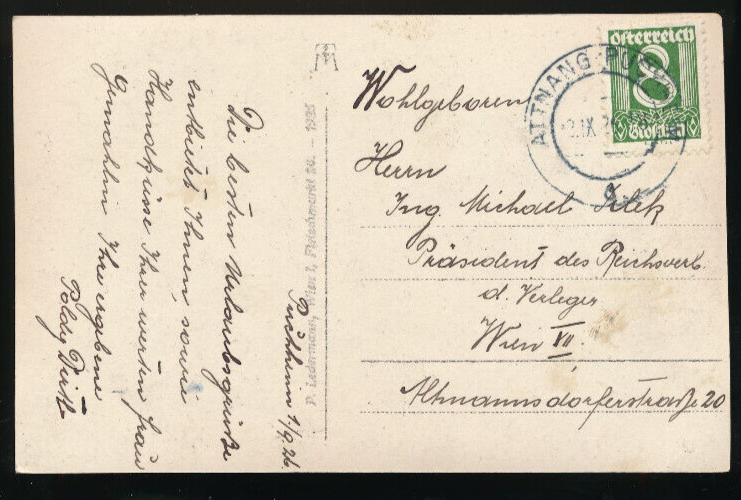 Puchheim 1/9.26.
Die besten Urlaubsgrüße
entbietet Ihnen, sowie
Handküsse Ihrer werten Frau
Gemahlin Ihre ergebene
Poldy
P. Ledermann, Wien I, Fleischmarkt 20. – 1925
Wohlgeboren
Herrn
Ing. Michael
Präsident des Reichsverb.
d. Verleger
Wien VII.
Altmannsdorferstraße 20
Österreich
8
Groschen
ATTNANG-PUCHHEIM
2.IX